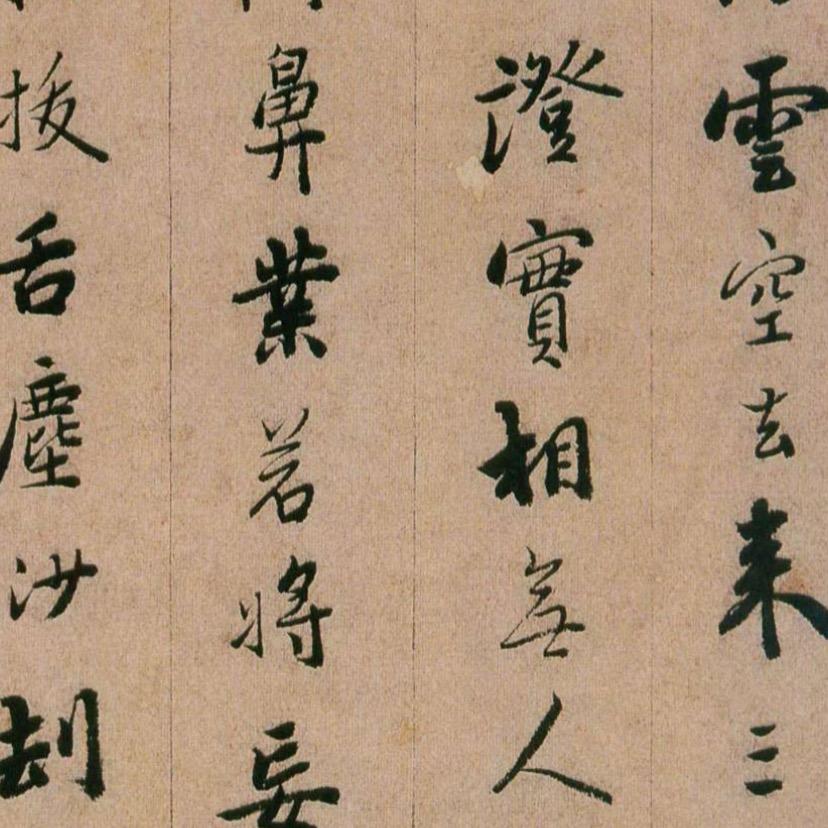 雲空去来三
證實相無人
鼻業若將妄
拔舌塵沙刦